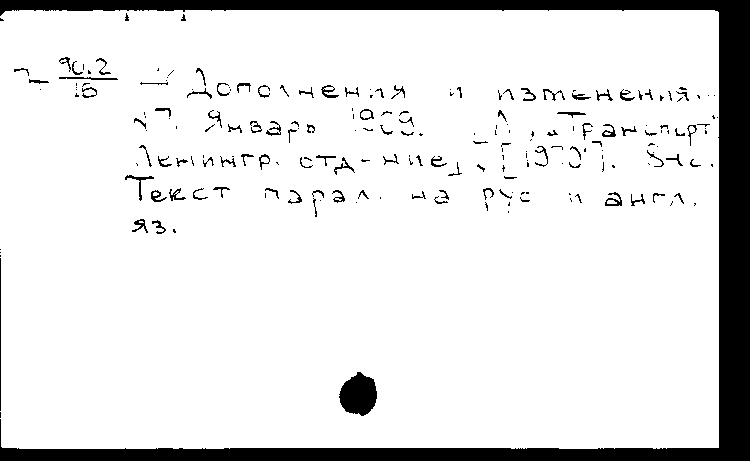 90.2 — Дополнения и изменения
16
Январь 1969. [Л., „Транспорт"
Ленингр. отд-ние], [1970]. с.
Текст парал. на рус и англ.
яз.